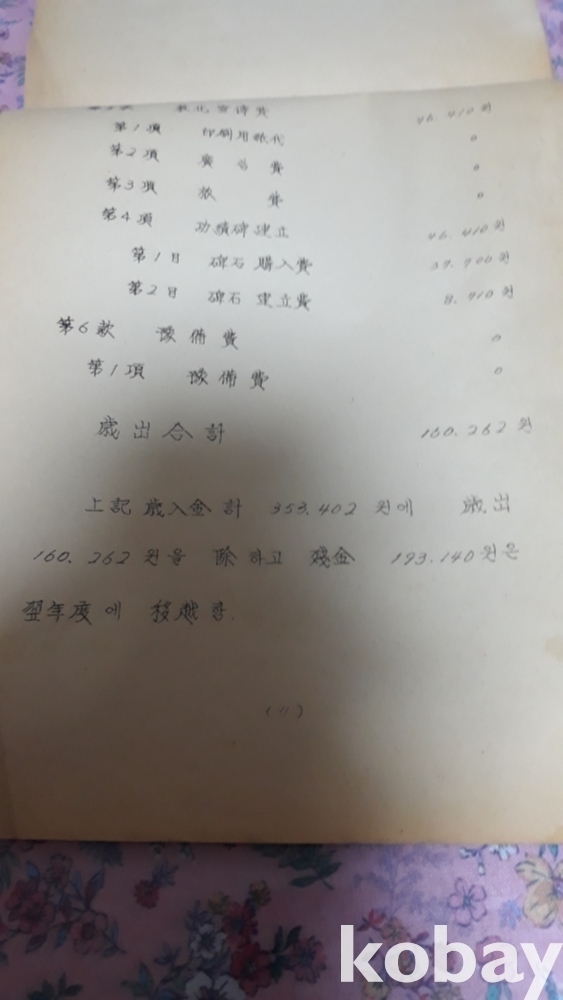 敎化宣傳費 46.410원
第1項 印刷用紙代 0
第2項 廣告費 0
第3項 旅費 0
第4項 功績碑建立 46.410원
第1目 碑石購入費 37.700원
第2目 碑石建立費 8.710원
第6款 豫備費 0
第1項 豫備費 0
歲出合計 160.262원
上記歲入合計 353.402원에 歲出
160.262원을 除하고 殘金 193.140원은
翌年度에 移越함.
kobay